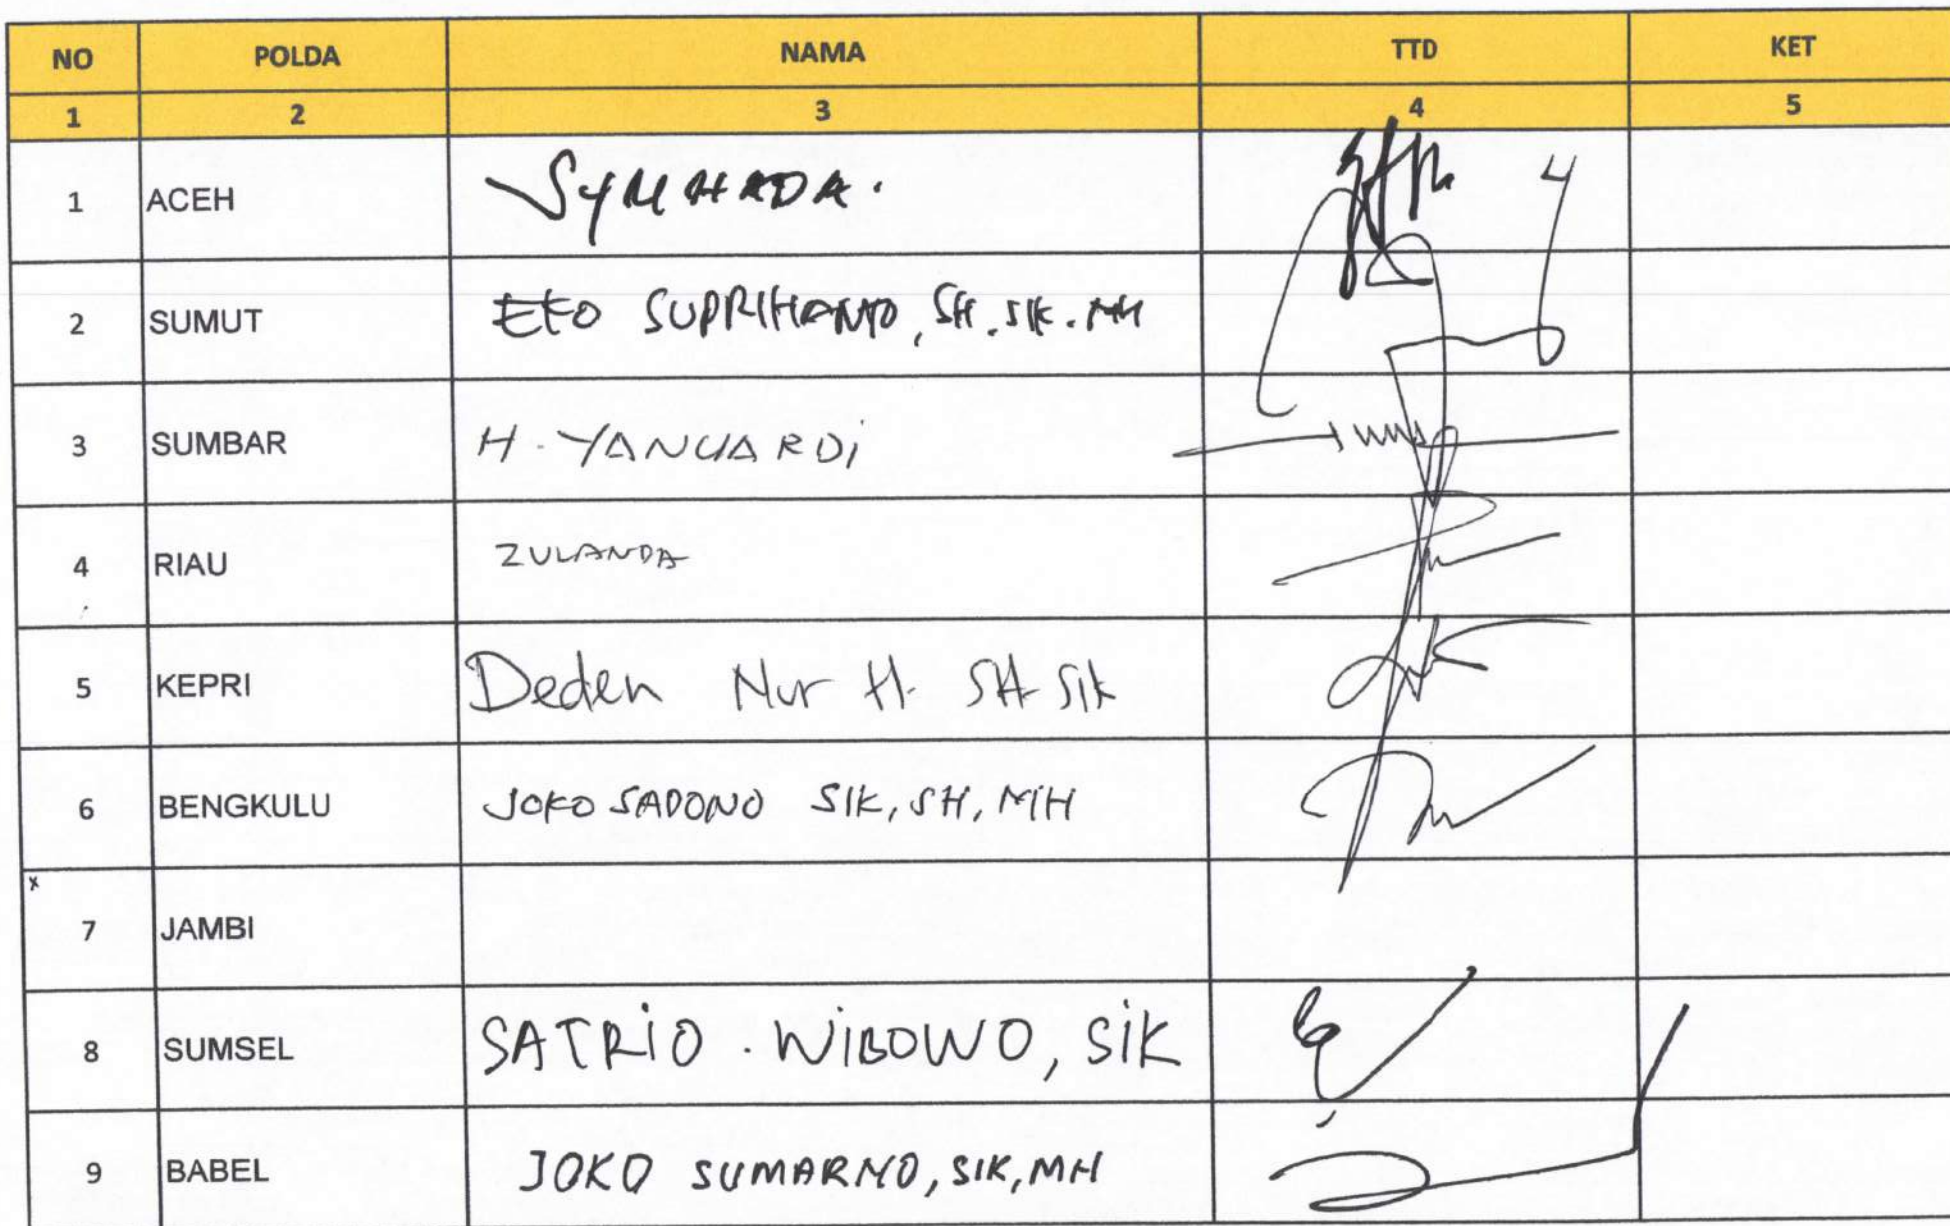 NO POLDA NAMA TTD KET
1 2 3 4 5
1 ACEH SYMHADA.
2 SUMUT EKO SUPRIHANTO, SH. SIK. MH
3 SUMBAR H. YANUARDi
4 RIAU ZULANDA
5 KEPRI Deden Nur H. SH SIK
6 BENGKULU JOKO SADONO SIK, SH, MH
7 JAMBI
8 SUMSEL SATRiO . WiBOWO, SiK
9 BABEL JOKO SUMARNO, SIK, MH